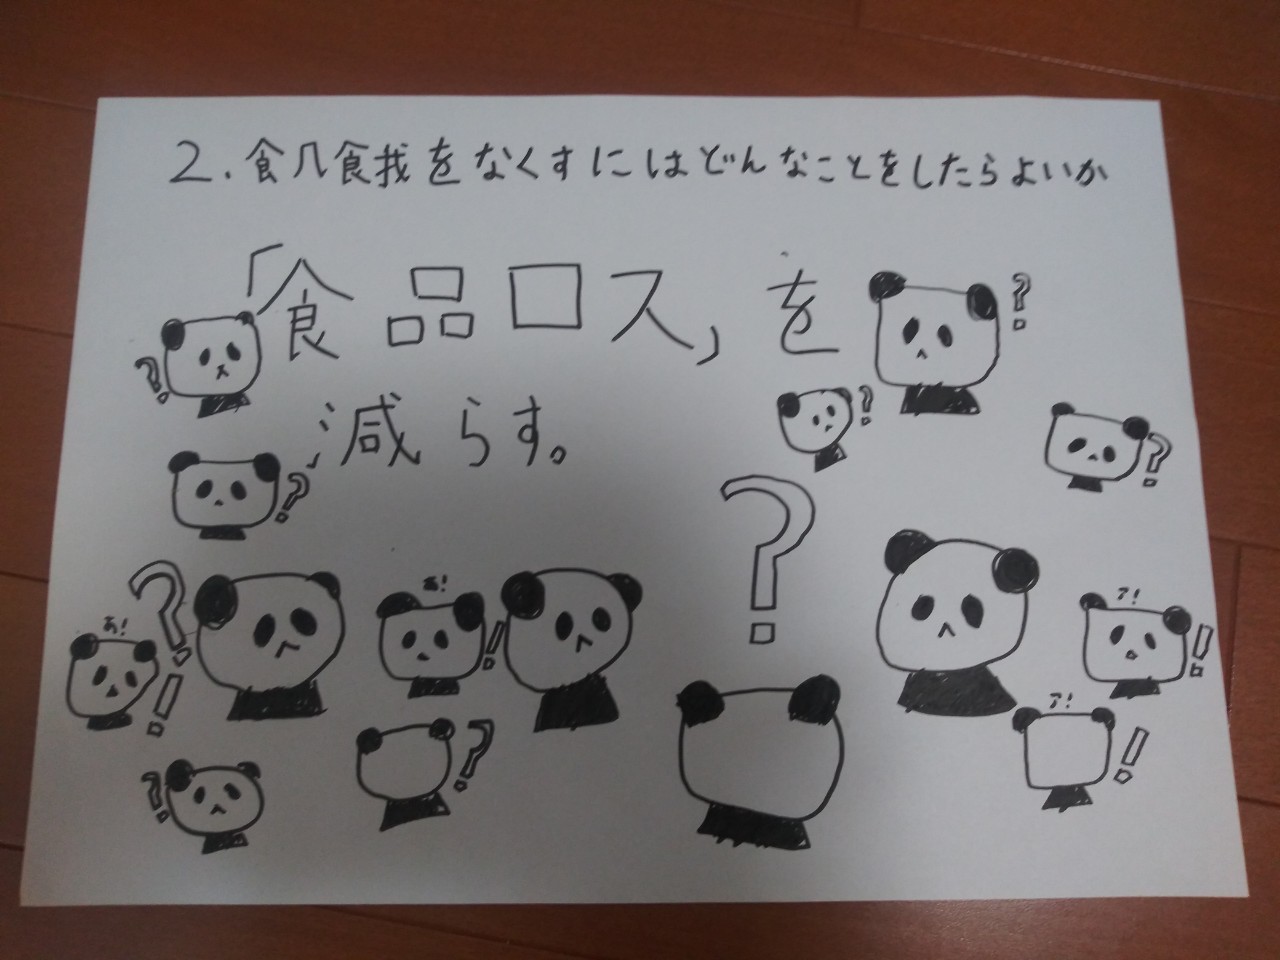 2. 食几食我をなくすにはどんなことをしたらよいか
「食品ロス」を
減らす。
?
?
?
?
?
?
?
あ!
?
あ!
!
ア!
!
!
ア!
!
?
?